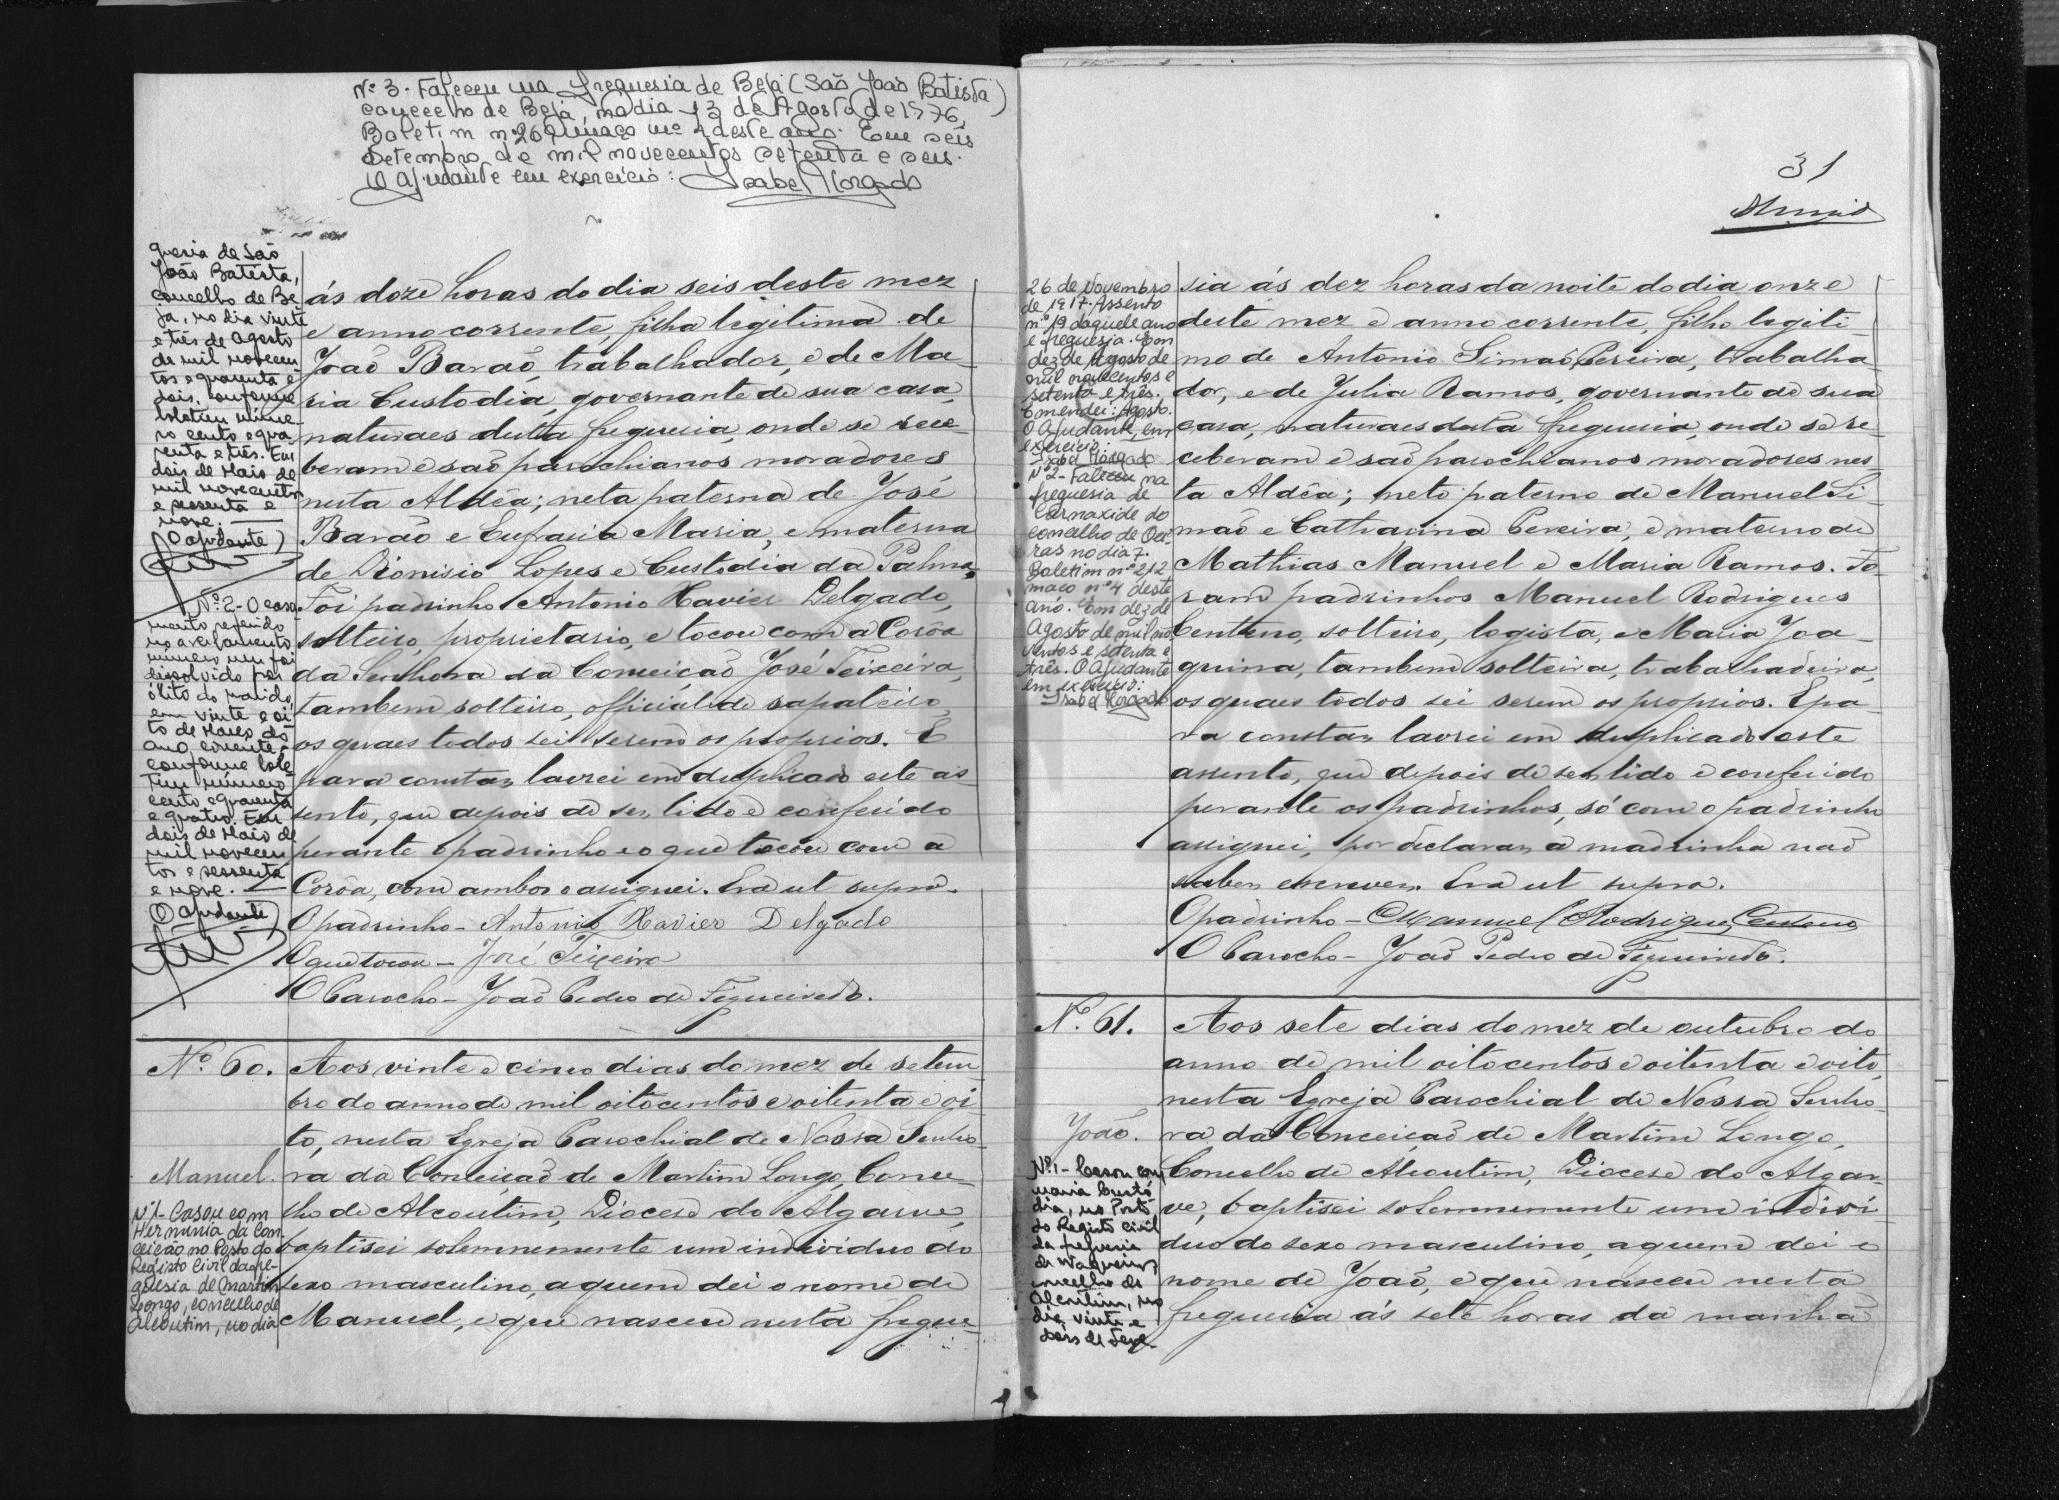 Nº 3. Faleceu na freguesia de Beja (São João Batista)
concelho de Beja, no dia 13 de Agosto de 1976,
Boletim nº 269 maço nº 2 deste ano. Em seis
Setembro de mil novecentos setenta e seis.
O Ajudante em exercício: Isabel Morgado
guesia de São
João Batista,
concelho de Be
ja, no dia vinte
e três de Agosto
de mil novecen
tos e quarenta e
dois, conforme
boletim núme-
ro cento e qua
renta e três. Em
dois de Maio de
mil novecentos
e sessenta e
nove.
O ajudante
Nº 2 - O casa
mento referido
no averbamento
número um foi
dissolvido por
óbito do marido,
em vinte e oi-
to de Março do
ano corrente -
conforme bole-
tim número
cento e quarenta
e quatro. Em
dois de Maio de
mil novecen
tos e sessenta
e nove.
O ajudante
ás doze horas do dia seis deste mez
e anno corrente, filha legitima de
João Barão, trabalhador, e de Ma-
ria Custodia, governante de sua casa,
naturaes desta freguesia, onde se rece
beram e são parochianos moradores
nesta Aldêa; neta paterna de José
Barão e Eufrasia Maria, e materna
de Dionisio Lopes e Custodia da Palma.
Foi padrinho Antonio Xavier Delgado,
solteiro, proprietario, e tocou com a Corôa
da Senhora da Conceição José Teixeira,
tambem solteiro, official de sapateiro,
os quaes todos sei serem os proprios. E
para constar lavrei em duplicado este as
sento, que depois de ser lido e conferido
perante o padrinho e o que tocou com a
Corôa, com ambos o assignei. Era ut supra.
O padrinho - Antonio Xavier Delgado
O que tocou - José Teixeira
O Parocho - João Pedro de Figueiredo.
Nº 60.
Manuel.
Nº 1 - Casou com
Herminia da Con
ceição no Posto do
Registo Civil da fre-
guesia de Martim
Longo, concelho de
Alcoutim, no dia
Aos vinte e cinco dias do mez de setem
bro do anno de mil oitocentos e oitenta e oi-
to, nesta Egreja Parochial de Nossa Senho
ra da Conceição de Martim Longo, Conce-
lho de Alcoutim, Diocese do Algarve,
baptisei solemnemente um individuo do
sexo masculino, a quem dei o nome de
Manuel, e que nasceu nesta fregue-
31
26 de Novembro
de 1917. Assento
nº 19 daquele ano
e freguesia. Em
dez de Agosto de
mil novecentos e
setenta e três.
Emendei: Agosto.
O Ajudante em
exercício:
Isabel Morgado
Nº 2 - Faleceu na
freguesia de
Carnaxide do
concelho de Oei-
ras no dia 7.
Boletim nº 212
maço nº 4 deste
ano. Em dez de
Agosto de mil nove
centos e setenta e
três. O Ajudante
em exercício:
Isabel Morgado
sia ás dez horas da noite do dia onze
deste mez e anno corrente, filho legiti-
mo de Antonio Simão Pereira, trabalha
dor, e de Julia Ramos, governante de sua
casa, naturaes desta freguesia, onde se re-
ceberam e são parochianos moradores nes-
ta Aldêa; neto paterno de Manuel Si-
mão e Catharina Pereira, e materno de
Mathias Manuel e Maria Ramos. Fo-
ram padrinhos Manuel Rodrigues
Centeno, solteiro, logista, e Maria Joa-
quina, tambem solteira, trabalhadeira,
os quaes todos sei serem os proprios. E pa-
ra constar lavrei em duplicado este
assento, que depois de ser lido e conferido
perante os padrinhos, só com o padrinho
assignei, por declarar a madrinha não
saber escrever. Era ut supra.
O padrinho - Manuel Rodrigues Centeno
O Parocho - João Pedro de Figueiredo.
Nº 61.
João.
Nº 1 - Casou com
Maria Custó
dia, no Posto
do Registo Civil
da freguesia
de Vaqueiros
concelho de
Alcoutim, no
dia vinte e
dois de Feve-
Aos sete dias do mez de outubro do
anno de mil oitocentos e oitenta e oito,
nesta Egreja Parochial de Nossa Senho-
ra da Conceição de Martim Longo,
Concelho de Alcoutim, Diocese do Algar-
ve, baptisei solemnemente um indivi
duo do sexo masculino, a quem dei o
nome de João, e que nasceu nesta
freguesia ás sete horas da manhã